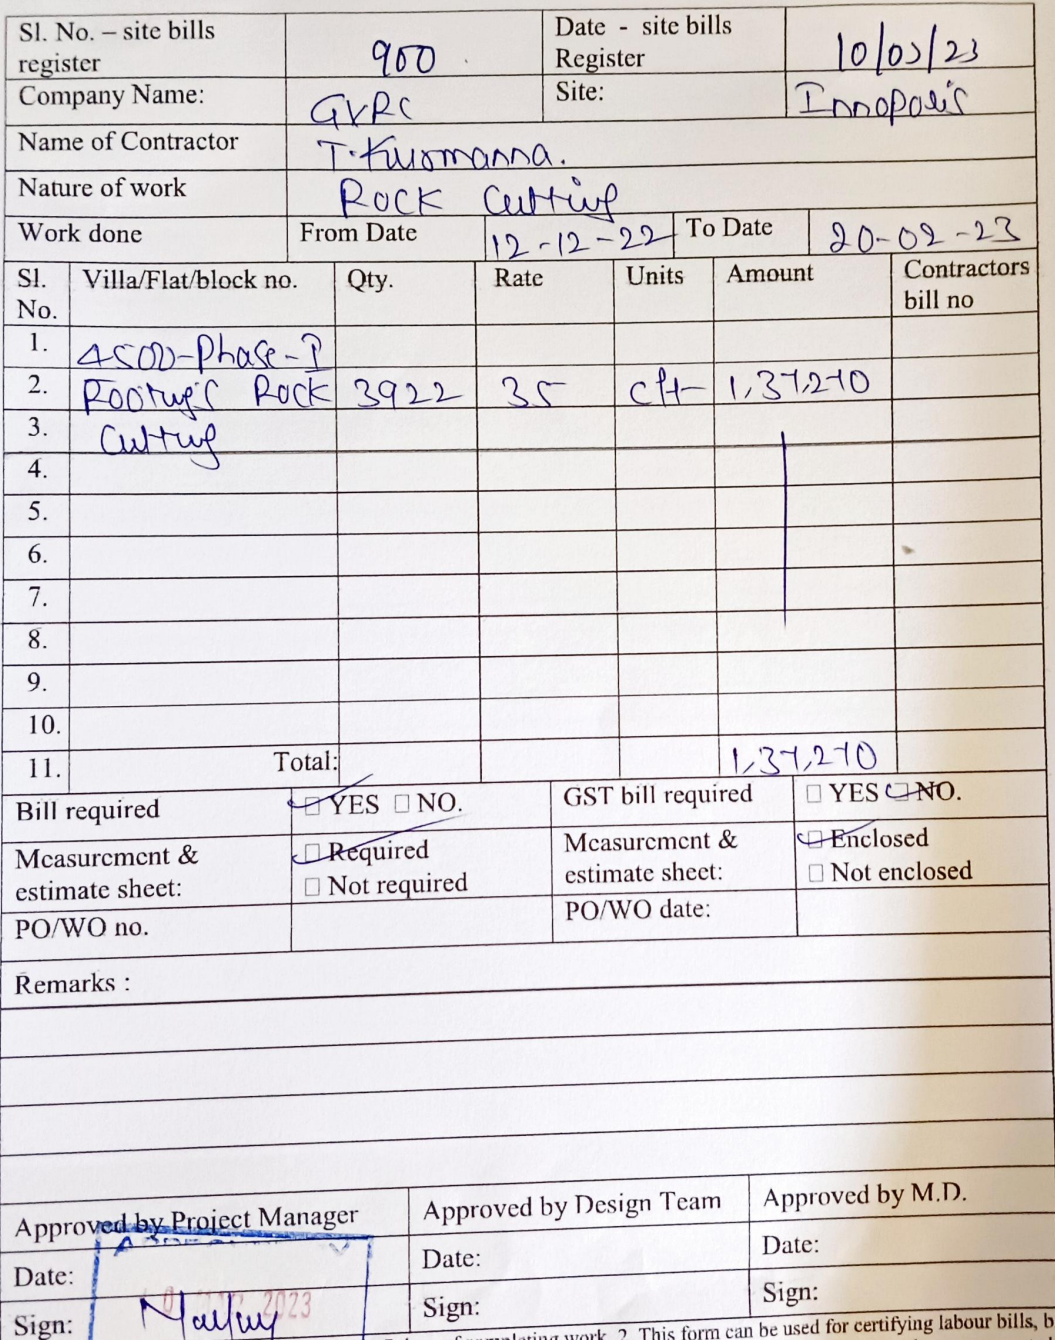 Sl. No. – site bills register 900 Date - site bills Register 10/03/23
Company Name: GVRC Site: Innopolis
Name of Contractor T. Kurmanna.
Nature of work Rock Cutting
Work done From Date 12-12-22 To Date 20-02-23
Sl. No. Villa/Flat/block no. Qty. Rate Units Amount Contractors bill no
1. 4500-Phase-I
2. Footing's Rock 3922 35 cft 1,37,270
3. Cutting
4.
5.
6.
7.
8.
9.
10.
11. Total: 1,37,270
Bill required YES NO. GST bill required YES NO.
Measurement & estimate sheet: Required Not required Measurement & estimate sheet: Enclosed Not enclosed
PO/WO no. PO/WO date:
Remarks :
Approved by Project Manager Approved by Design Team Approved by M.D.
Date: Date: Date:
2023
Sign: Sign: Sign:
work. 2. This form can be used for certifying labour bills, b